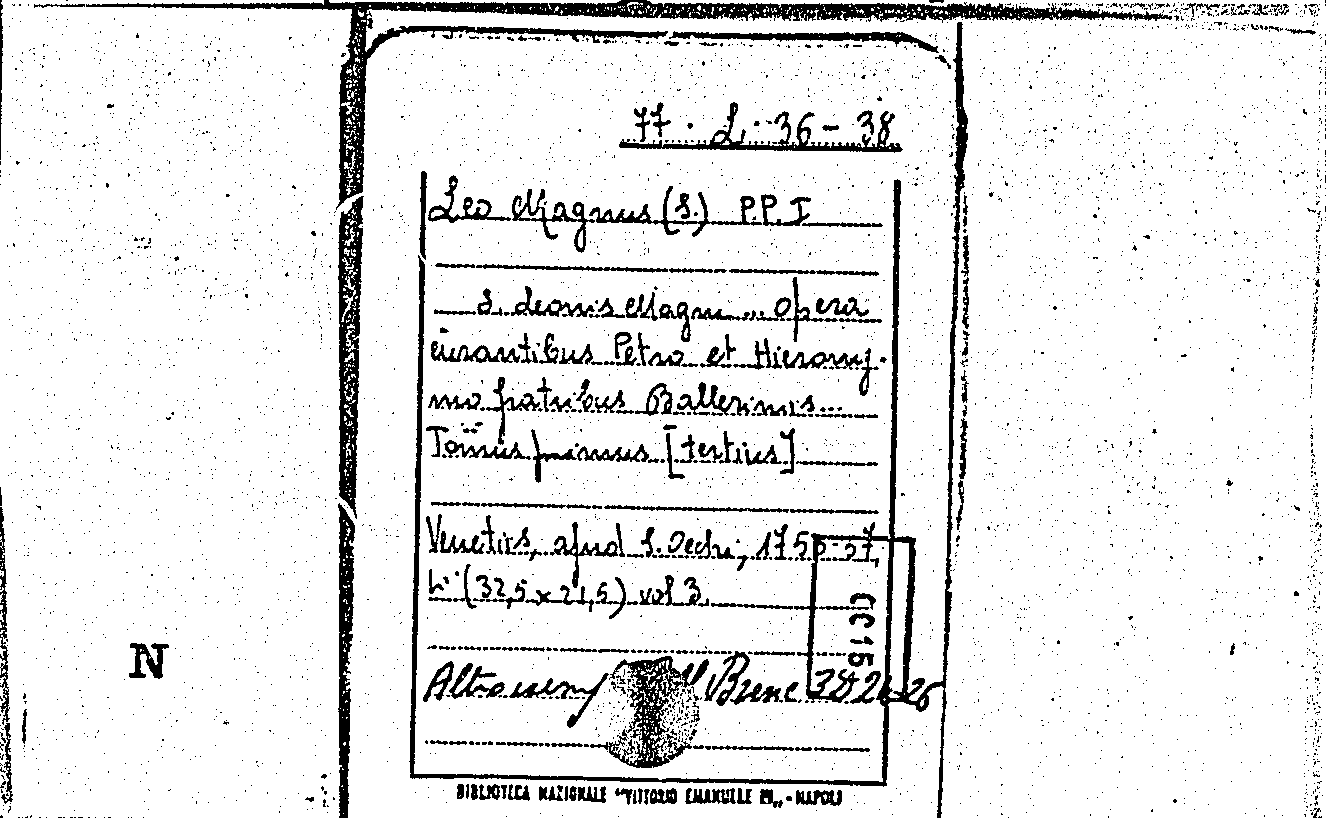 77. L. 36-38
Leo Magnus (S.) P.P. I
S. Leonis Magni ... opera
curantibus Petro et Hierony-
mo fratribus Ballerinis...
Tomus primus [tertius]
Venetiis, apud S. Occhi, 1753-57,
4° (32,5 x 21,5) vol 3.
Altro esemp Branc 38
BIBLIOTECA NAZIONALE "VITTORIO EMANUELE III" - NAPOLI
N